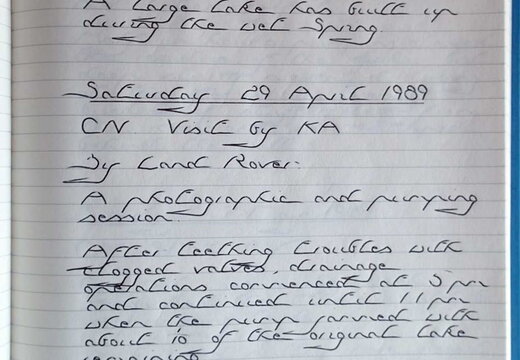 A large lake has built up
during the wet Spring.
Saturday 29 April 1989
CN Visit by KA
By Land Rover.
A photographic and pumping
session.
After teething troubles with
clogged valves, drainage
operations commenced at 5pm
and continued until 11pm
when the pump jammed with
about of the original lake
remaining